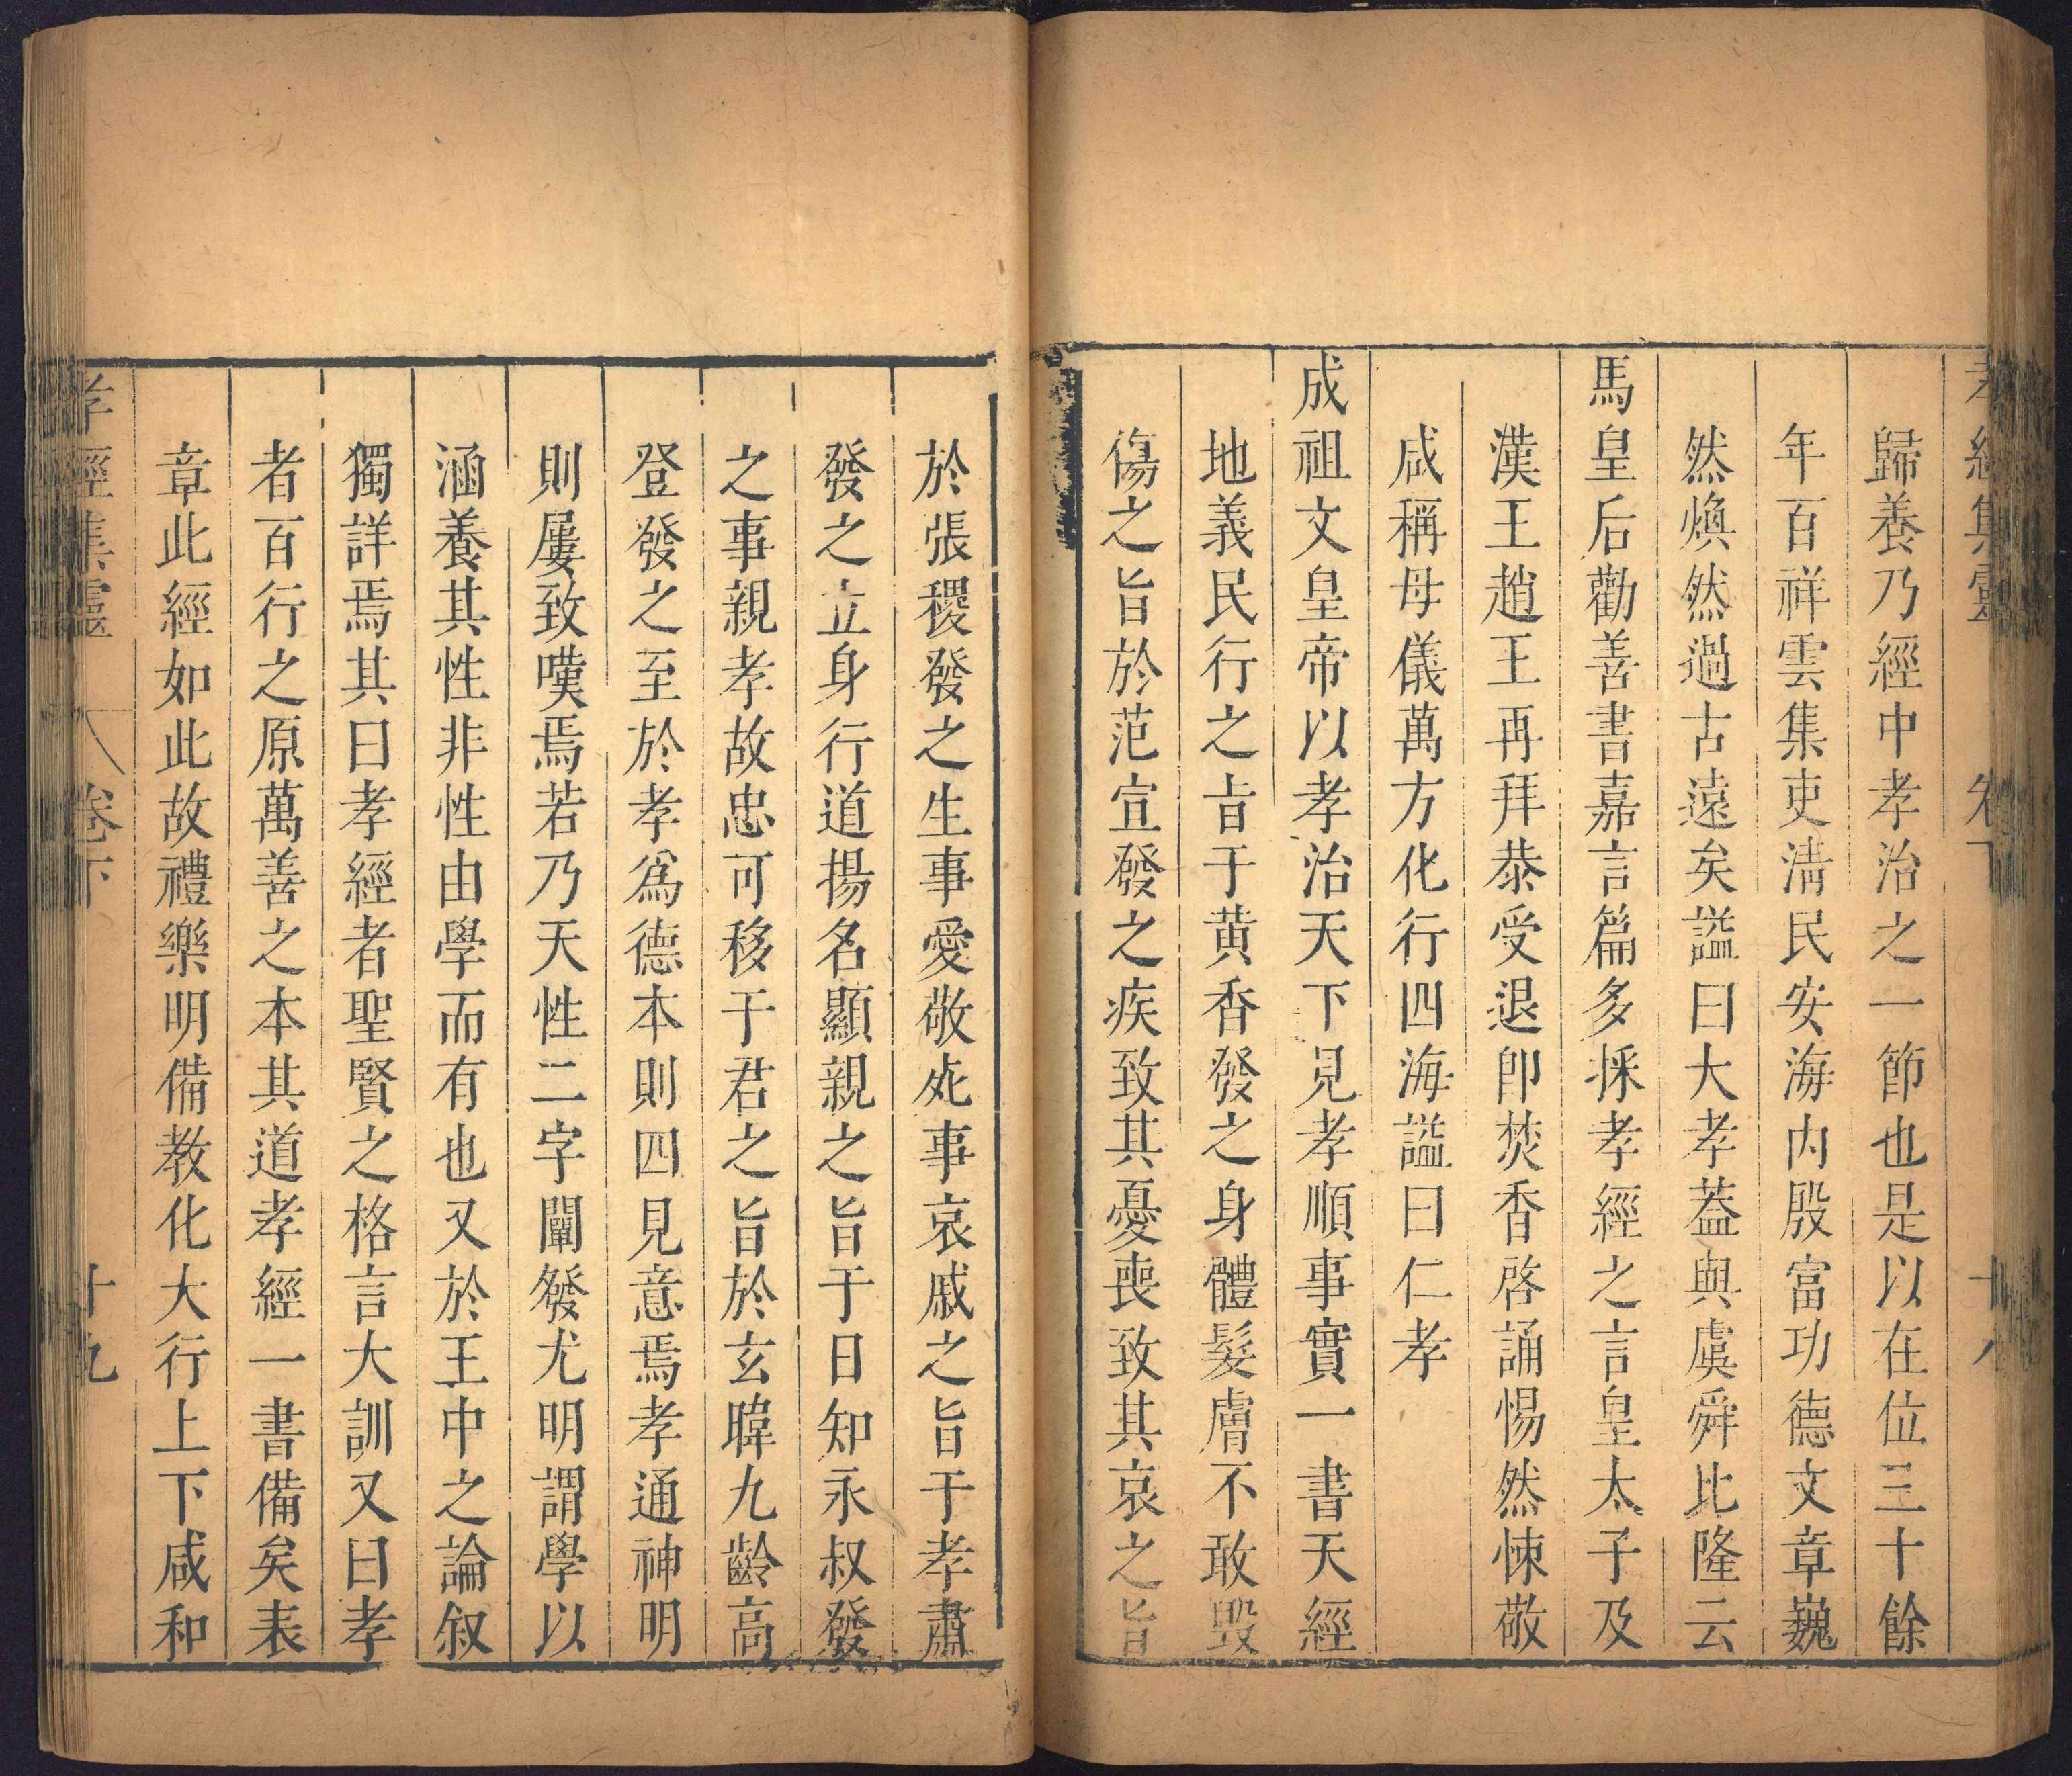 孝經集靈 卷下 十八
歸養乃經中孝治之一節也是以在位三十餘
年百祥雲集吏淸民安海内殷富功德文章巍
然煥然過古遠矣謚曰大孝葢與虞舜比隆云
馬皇后勸善書嘉言篇多採孝經之言皇太子及
漢王趙王再拜恭受退卽焚香啓誦惕然悚敬
咸稱母儀萬方化行四海謚曰仁孝
成祖文皇帝以孝治天下見孝順事實一書天經
地義民行之旨于黄香發之身體髮膚不敢毀
傷之旨於范宣發之疾致其憂喪致其哀之旨
於張稷發之生事愛敬死事哀戚之旨于孝肅
發之立身行道揚名顯親之旨于日知永叔發
之事親孝故忠可移于君之旨於玄暐九齡高
登發之至於孝爲德本則四見意焉孝通神明
則屢致嘆焉若乃天性二字闡發尤明謂學以
涵養其性非性由學而有也又於王中之論叙
獨詳焉其曰孝經者聖賢之格言大訓又曰孝
者百行之原萬善之本其道孝經一書備矣表
章此經如此故禮樂明備教化大行上下咸和
孝經集靈 卷下 十九